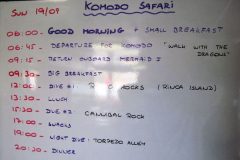 SUN 19/09 KOMODO SAFARI
06:00 - GOOD MORNING + SMALL BREAKFAST
06:45 - DEPARTURE FOR KOMODO "WALK WITH THE
DRAGONS"
09:15 - RETURN ONBOARD MERMAID I
09:30 - BIG BREAKFAST
12:00 - DIVE #1: ROCKS (RINCA ISLAND)
13:30 - LUNCH
15:30 - DIVE #2: CANNIBAL ROCK
17:00 - SNACKS
19:00 - NIGHT DIVE: TORPEDO ALLEY
20:30 - DINNER